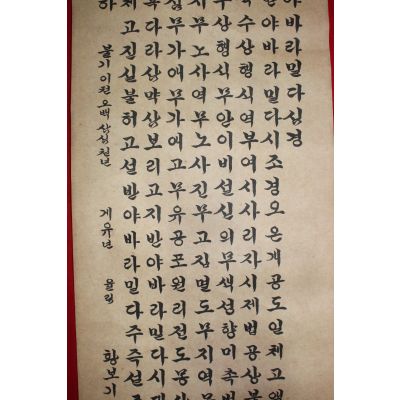 야바라밀다심경
반야바라밀다시조경오온개공도일체고액
수상행식역부여시사리자시제법공상불
상행식무안이비설신의무색선향미촉법
지무노사역무노사진무고집멸도무지역무
심무가애무가애고무유공포원리전도몽상
다라삼먁삼보리고지반야바라밀다시
체고진실불허고설반야바라밀다주즉설주
하
불기이천오백삼십칠년 계유년 율림 황보기